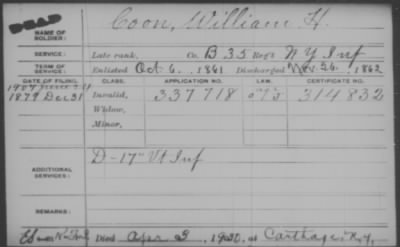 DEAD
NAME OF SOLDIER: Coon, William H.
SERVICE: Late rank, Co. B 35 Reg't N Y Inf
TERM OF SERVICE: Enlisted Oct 6, 1861 Discharged Nov. 26, 1862
DATE OF FILING. CLASS. APPLICATION NO. LAW. CERTIFICATE NO.
1907
1879 Dec 31 Invalid, 337718 314832
Widow,
Minor,
ADDITIONAL SERVICES: D-17" Vt Inf
REMARKS:
Died Apr 3, 1920, at Carthage N.Y.